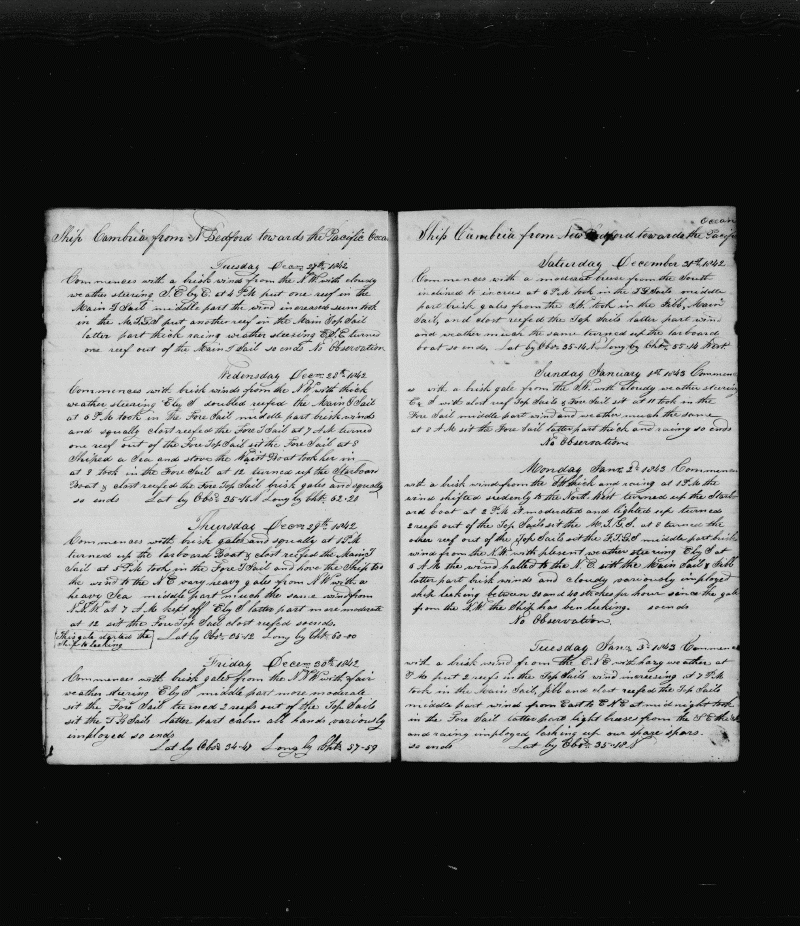 Ship Cambria from N Bedford towards the Pacific Ocean
Tuesday Decem 27th 1842
Commences with a brisk wind from the N.W. with cloudy
weather steering S.E. by E. at 4 P.M. put one reef in the
Main T Sail middle part the wind increased sum took
in the M.T.G.S put another reef in the Main Top Sail
latter part thick racing weather steering E.S.E. turned
one reef out of the Main T Sail so ends No Observation
Wednesday Decem 28th 1842
Commences with brisk winds from the N.W. with thick
weather steering E by S doubled reefed the Main T Sail
at 6 P.M. took in the Fore Sail middle part brisk winds
and squally clost reefed the Fore T Sail at 7 A.M. turned
one reef out of the Fore Top Sail sit the Fore Sail at 8
Shiped a Sea and stove the Waist Boat took her in
at 9 took in the Fore Sail at 12 turned up the Starboard
Boat & clost reefed the Fore Top Sail brisk gales and squally
so ends Lat by Obs. 35-16 N Long by Chr. 62-20
Thursday Decem 29th 1842
Commences with brisk gales and squally at 1 P.M.
turned up the larboard Boat & clost reefed the Main T
Sail at 5 P.M. took in the Fore T Sail and hove the Ship too
the wind to the N E vary heavy gales from N.W. with a
heavy Sea middle part much the same wind from
N.N.W. at 7 A.M. kept off E by S latter part more moderate
at 12 sit the Fore Top Sail clost reefed so ends.
This gale started the
Ship to leaking
Lat by Obs. 35-12 Long by Chr. 60-00
Friday Decem 30th 1842
Commences with brisk gales from the N.N.W. with fair
weather steering E by S middle part more moderate
sit the Fore Sail turned 2 reefs out of the Top Sails
sit the T.G Sails latter part calm all hands variously
imployed so ends
Lat by Obs. 34-47 Long by Chr. 57-59
ocean
Ship Cambria from New Bedford towards the Pacific
Saturday December 31st 1842
Commences with a modrant breese from the South
inclined to increes at 6 P.M. took in the T.G Sails middle
part brisk gales from the S.W. took in the Jibb, Main
Sail, and clost reefed the Top Sails latter part wind
and weather much the same turned up the larboard
boat so ends. Lat by Obs. 35-14 N Long by Chr. 55-14 West
Sunday January 1st 1843 Commences
with a brisk gale from the S.W. with cloudy weather steering
E by S with clost reef Top Sails & Fore Sail sit at 11 took in the
Fore Sail middle part wind and weather much the same
at 8 A.M. sit the Fore Sail latter part thick and racing so ends
No Observation
Monday Jan. 2d 1843 Commences
with a brisk wind from the S.W thick and raing at 1 P.M. the
wind shifted sudenly to the North West turned up the Starb
oard boat at 2 P.M. it moderated and lighted up turned
2 reefs out of the Top Sails sit the M.T.G.S. at 6 turned the
other reef out of the Top Sails sit the F.T.G.S middle part brisk
wind from the N.W. with plesent weather steering E by S at
6 A.M. the wind halled to the N.E. sit the Main Sail & Jibb
latter part brisk winds and cloudy variously imployed
ship leaking betwen 30 and 40 strokes per hour since the gale
from the N.W. the Ship has ben leaking. so ends
No Observation
Tuesday Jan. 3d 1843 Commences
with a brisk wind from the E.N.E with hazy weather at
P.M. put 2 reefs in the Top Sails wind incresing at 7 P.M.
took in the Main Sail, Jibb and clost reefed the Top Sails
middle part wind from East to E N E at midnight took
in the Fore Sail latter part light breeses from the S.E thick
and raing imployed lashing up our spare spars.
so ends Lat by Obs. 35-18 N